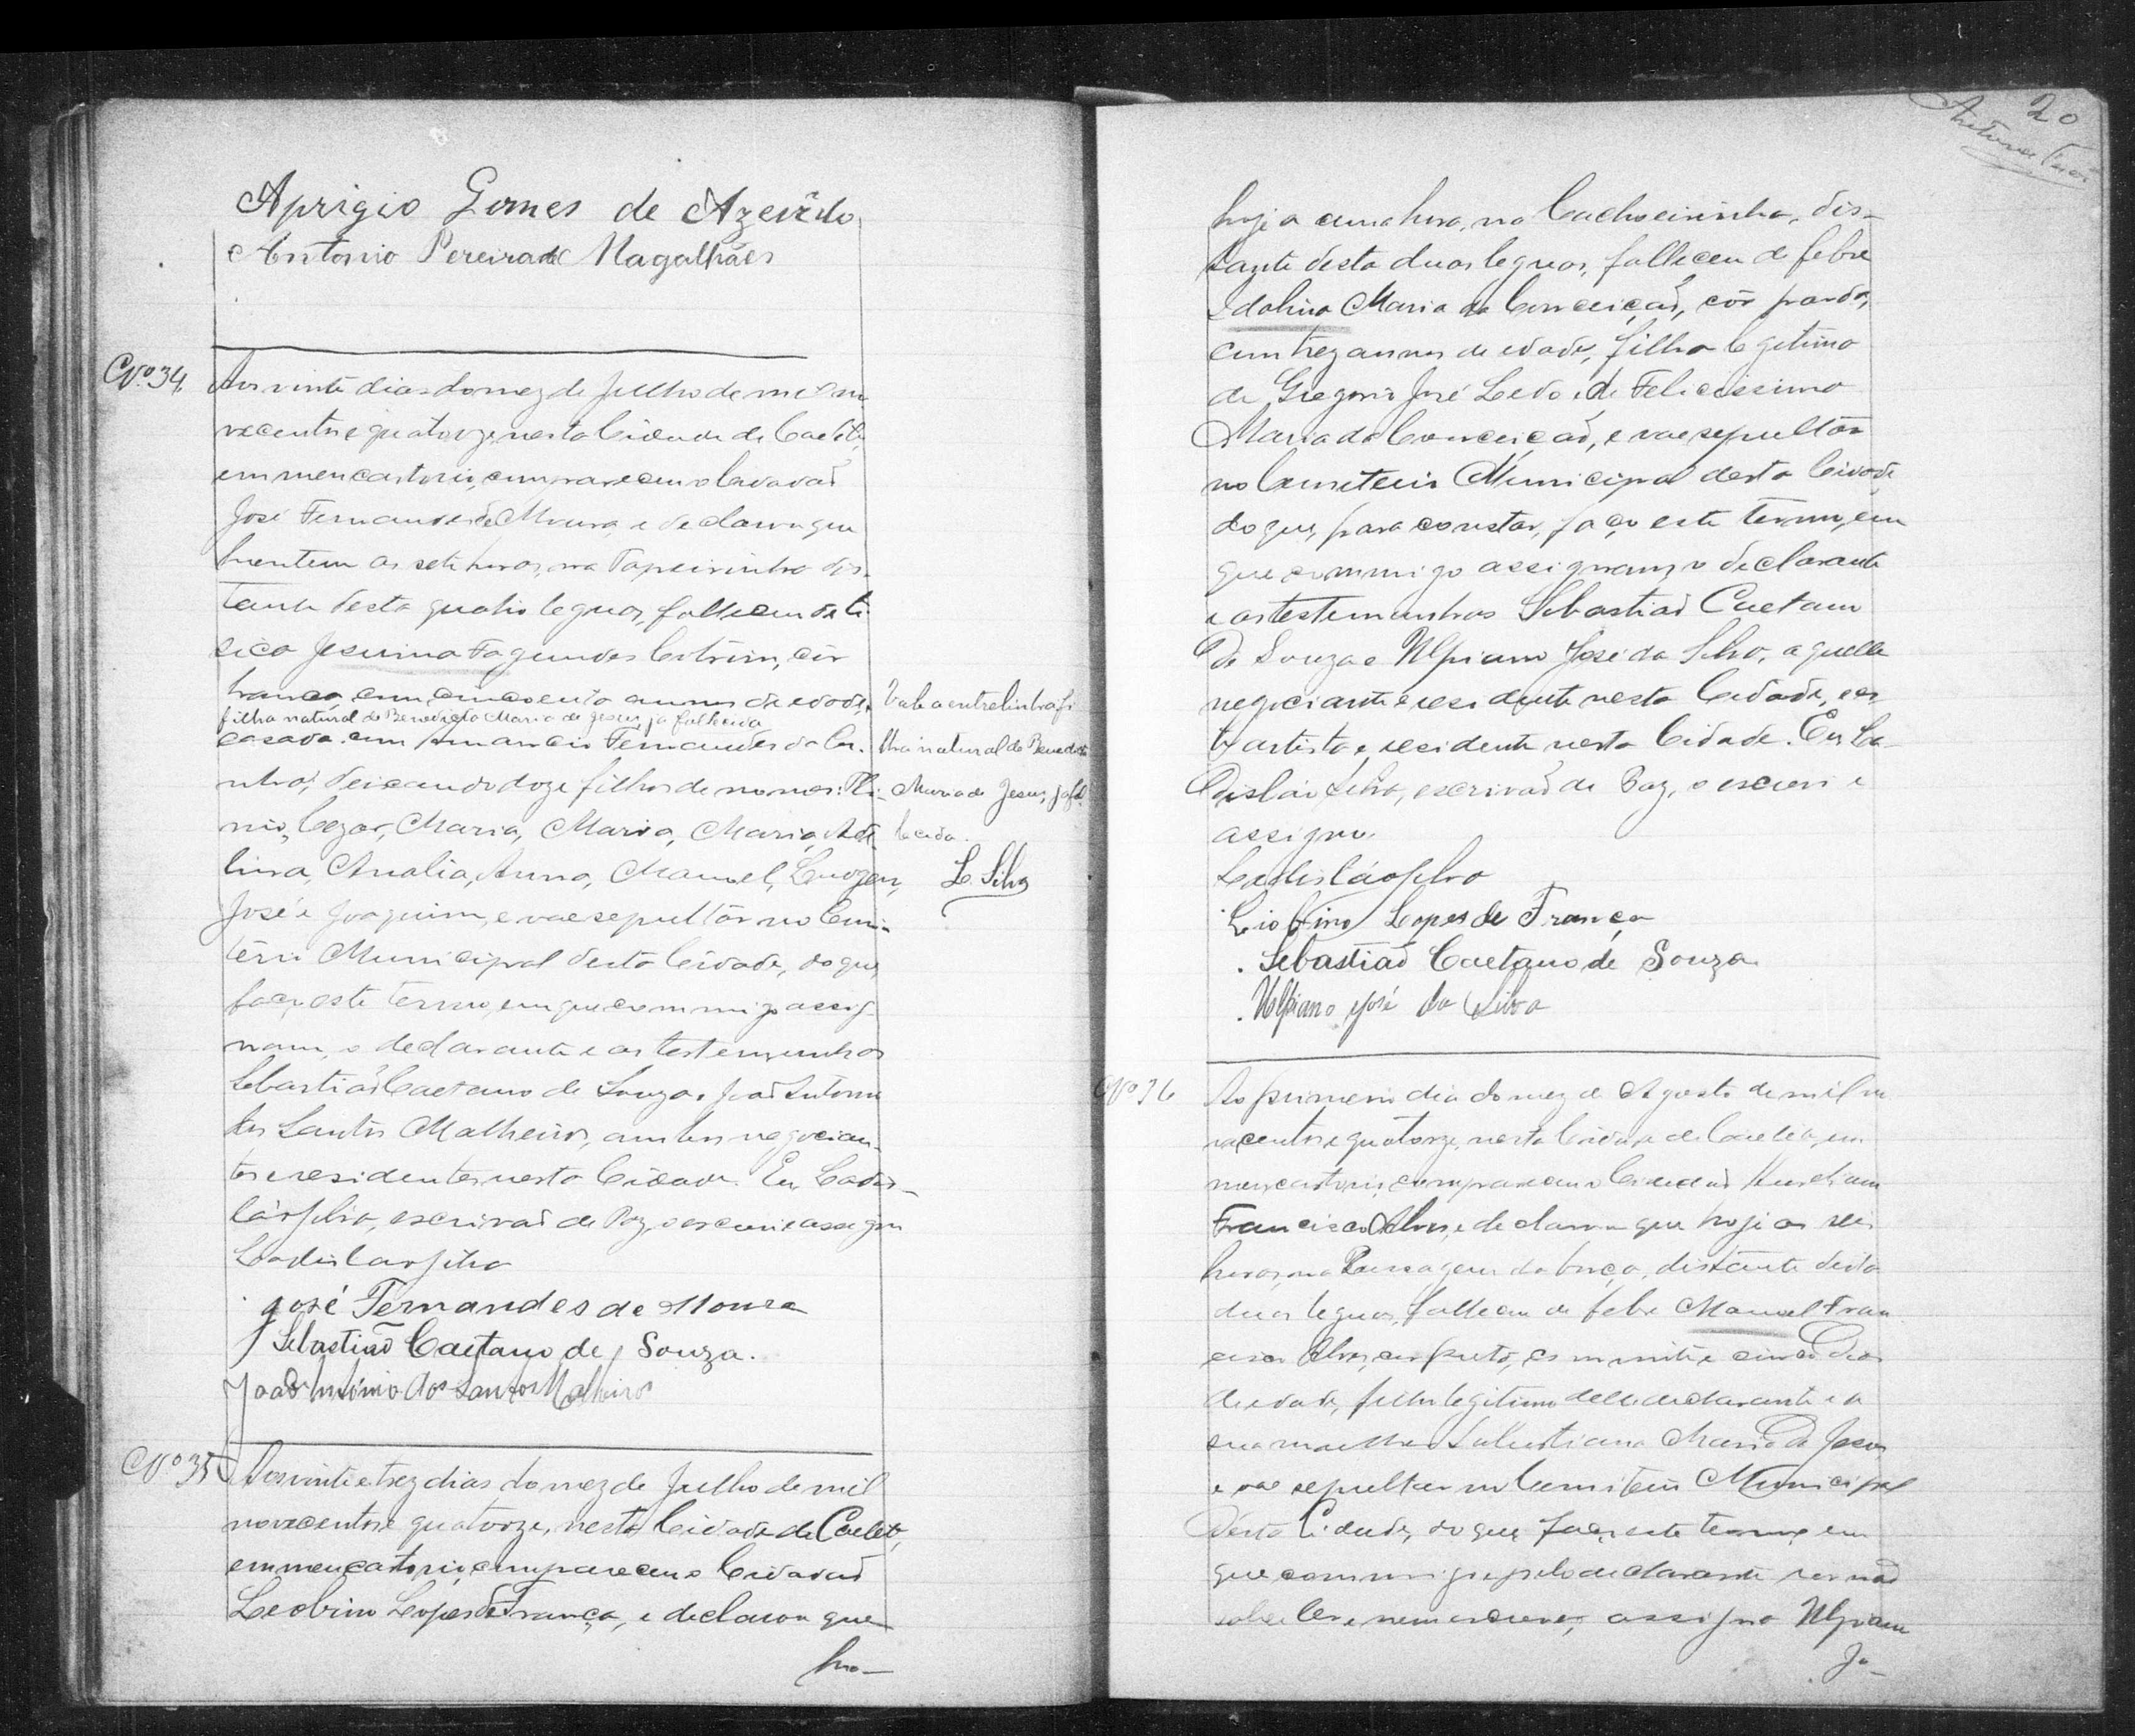 Aprigio Gomes de Azevêdo
Antonio Pereira de Magalhães
Nº 34.
Aos vinte dias do mez de Julho de mil no
vecentos e quatorze, nesta Cidade de Caeteté,
em meu cartorio, compareceu o Cidadaõ
José Fernandes de Moura, e declarou que
hontem as sete horas, na Tapeirinha dis-
tante desta quatro leguas, falleceu de ti
sica Jesuina Fagundes Cotrim, côr
branca, com cincoenta annos de edade,
filha natural de Benedicta Maria de Jesus, ja fallecida
casada com Amancio Fernandes da Cu-
nha, deixando doze filhos de nomes: Pli-
nio, Cezar, Maria, Maria, Maria, Ade-
lina, Analia, Anna, Manoel,
José e Joaquim, e vae sepultár no Cemi-
terio Municipal desta Cidade, do que,
faço este termo, em que commigo assig-
nam, o declarante e as testemunhas
Sebastiaõ Caetano de Souza e Joaõ Antonio
dos Santos Malheiros, ambos negocian-
tes e residentes nesta Cidade. Eu, Ladis-
láo Silva, escrivaõ de Paz, o escrevi e assigno
Ladisláo Silva
José Fernandes de Moura
Sebastiaõ Caetano de Souza.
Joaõ António dos Santos Malheiros
Vale a entrelinha fi
lha natural de Benedicta
Maria de Jesus, ja fal
lecida.
L. Silva
Nº 35
Aos vinte e trez dias do mez de Julho de mil
novecentos e quatorze, nesta Cidade de Caeteté,
em meu cartorio, compareceu o Cidadaõ
Leobino Lopes de França, e declarou que
ho-
20
hoje a uma hora, na Cachoeirinha, dis-
tante desta duas leguas, falleceu de febre
Idalina Maria da Conceiçaõ, côr parda,
com trez annos de edade, filha legitima
de Gregorio José Ledo e de Felicissima
Maria da Conceiçaõ, e vae sepultár
no Cemiterio Municipal desta Cidade
do que, para constar, faço este termo, em
que commigo assignam, o declarante
e as testemunhas Sebastiaõ Caetano
de Souza e Ulpiano José da Silva, aquelle
negociante e residente nesta Cidade, e es
te artista e residente nesta Cidade. Eu, La-
disláo Silva, escrivaõ de Paz, o escrevi e
assigno.
Ladisláo Silva
Liobino Lopes de França
Sebastiaõ Caetano de Souza
Ulpiano José da Silva
Nº 36
Ao primeiro dia do mez de Agosto de mil no
vecentos e quatorze, nesta Cidade de Caeteté, em
meu cartorio, compareceu o Cidadaõ Aureliano
Francisco Alves, e declarou que hoje as seis
horas, na Passagem da Onça, distante desta
duas leguas, falleceu de febre Manoel Fran
cisco Alves, côr preta, com vinte e cinco dias
de edade, filho legitimo delle declarante e de
sua mulher Salustiana Maria de Jesus,
e vae sepultar no Cemiterio Municipal
desta Cidade, do que, faço este termo, em
que commigo e pelo declarante por naõ
saber ler e nem escrever, assigna Ulpiano
Jo-